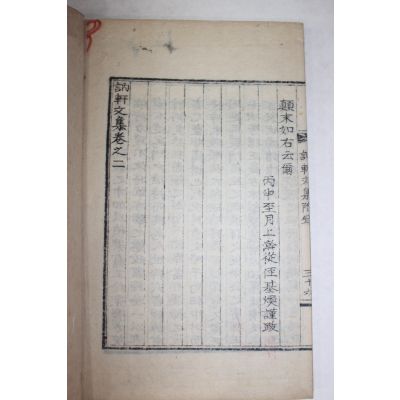 訥軒文集附錄 三十六
顛末如右云爾
丙申至月上澣從姪基煥謹跋
訥軒文集卷之二